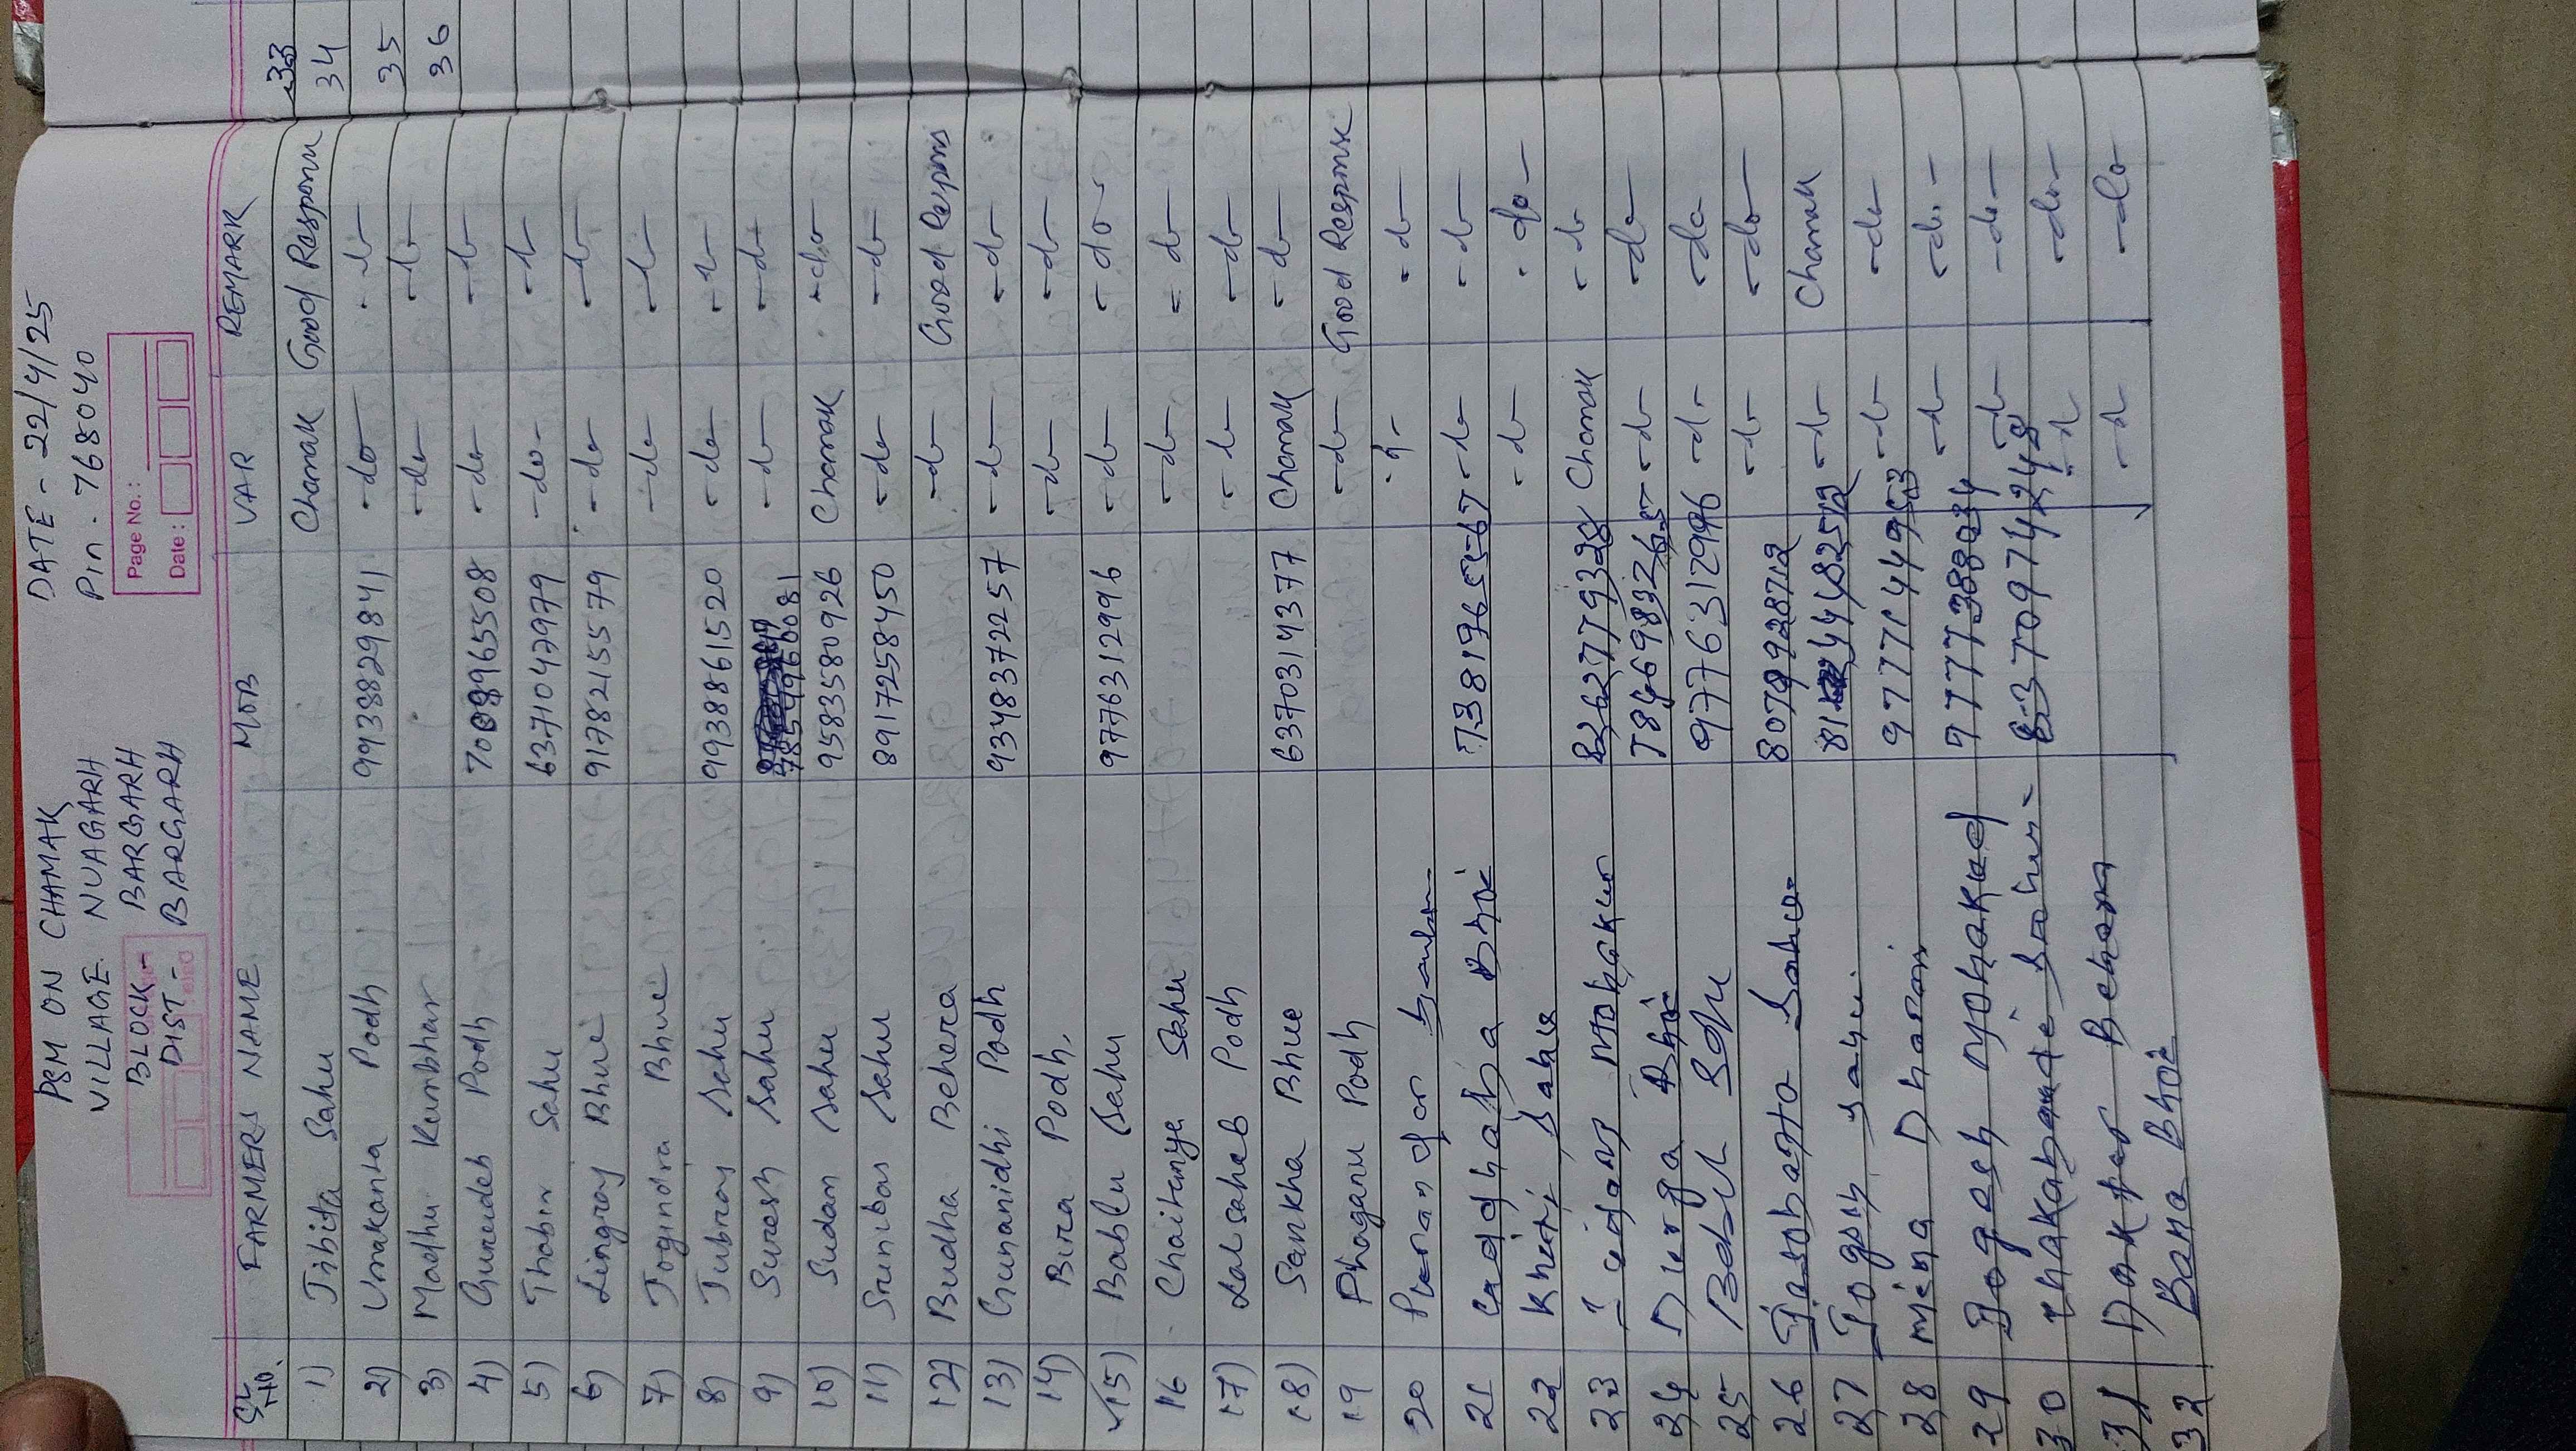 PSM ON CHAMAK DATE - 22/4/25
VILLAGE. NUAGARH Pin - 768040
BLOCK - BARGARH
DIST - BARGARH
Page No. :
Date :
SL NO. FARMERS NAME MOB VAR REMARK
1) Jibita Sahu Chamak Good Respons
2) Umakanta Podh 9938829841 -do- -do-
3) Madhu Kumbhar -do- -do-
4) Gurudeb Podh 7008965508 -do- -do-
5) Thabir Sahu 6371042979 -do- -do-
6) Lingraj Bhue 9178215579 -do- -do-
7) Jogindra Bhue -do- -do-
8) Jubraj Sahu 9938861520 -do- -do-
9) Suresh Sahu 7854960081 -do- -do-
10) Sudam Sahu 9583580926 Chamak -do-
11) Srinibas Sahu 8917258450 -do- -do-
12) Budha Behera -do- Good Respons
13) Gunanidhi Podh 9348372257 -do- -do-
14) Bira Podh. -do- -do-
15) Bablu Sahu 9776312996 -do- -do-
16 Chaitanya Sahu -do- -do-
17) Lalsaheb Podh -do- -do-
18) Sankha Bhue 6370314377 Chamak -do-
19 Phaganu Podh -do- Good Response
20 -do- -do-
21 Bhoi 7381965567 -do- -do-
22 Sahu -do- -do-
23 8262779328 Chamak -do-
24 Durga Bhoi 7846983265 -do- -do-
25 9776312996 -do- -do-
26 Sahu 8079928712 -do- -do-
27 Sahu -do- Chamak
28 Mina Dharai -do- -do-
29 9777738034 -do- -do-
30 -do- -do-
31 Behera -do- -do-
32 Bana Bhoi -do- -do-
33
34
35
36